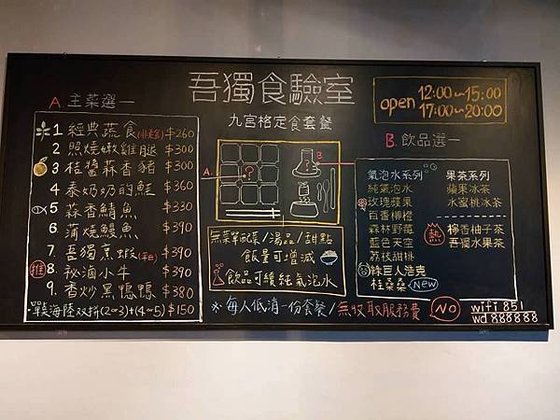 吾獨食驗室
九宮格定食套餐
open 12:00~15:00
17:00~20:00
A 主菜選一
1 經典蔬食 $260
2. 照燒嫩雞腿 $300
3 桂醬蒜香豬 $300
4 泰奶奶的鮭 $360
5 蒜香鯖魚 $330
6. 蒲燒鰻魚 $390
7. 吾獨烹蝦 $390
推 8. 祕滷小牛 $390
9. 香炒黑鴨鴨 $380
海陸双拼(2~3)+(4~5) $150
A.
?
B
無菜單配菜/湯品/甜點
飯量可增減
飲品可續純氣泡水
※每人低消一份套餐/無收取服務費
B. 飲品選一
氣泡水系列
純氣泡水
玫瑰蘋果
百香柳橙
森林野莓
藍色天空
荔枝甜桃
綠巨人浩克
桂桑桑 New
果茶系列
蘋果冰茶
水蜜桃冰茶
熱
檸香柚子茶
吾獨水果茶
NO
wifi 851
wd 888888